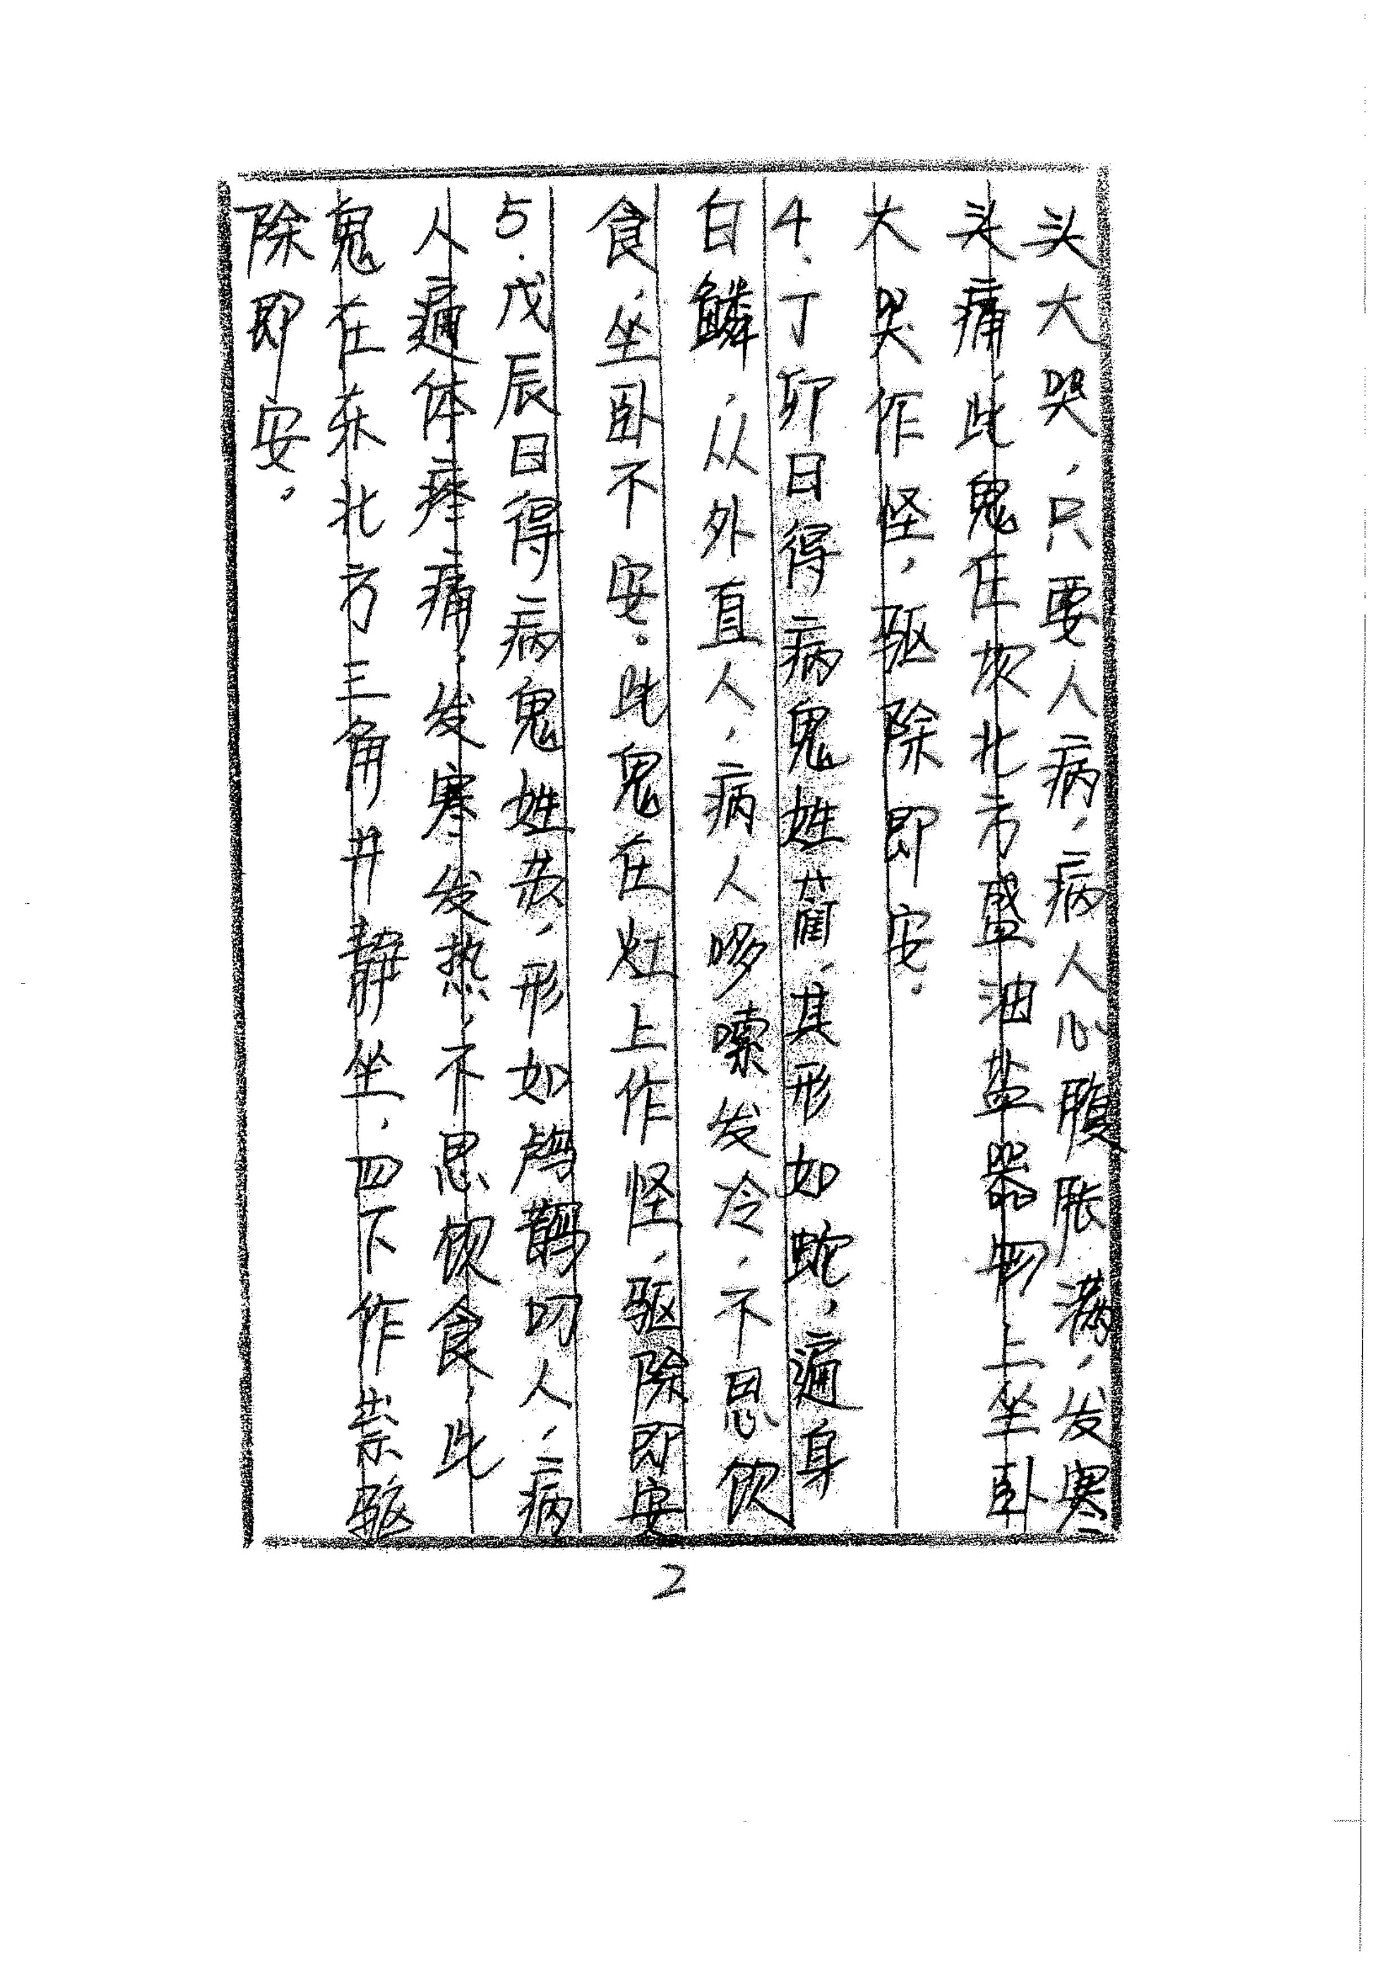 头大哭，只要人病，病人心腹胀满，发寒
头痛，此鬼在坎北方盛油盐器物上坐卧
大哭作怪，驱除即安。
4、丁卯日得病鬼姓蔺，其形如蛇，遍身
白鳞，从外直人，病人哆嗦发冷，不思饮
食，坐卧不安。此鬼在灶上作怪，驱除即安
5．戊辰日得病鬼姓，形如人，病
人遍体疼痛，发寒发热，不思饮食，此
鬼在东北方三角井静坐，四下作祟驱
除即安。
2